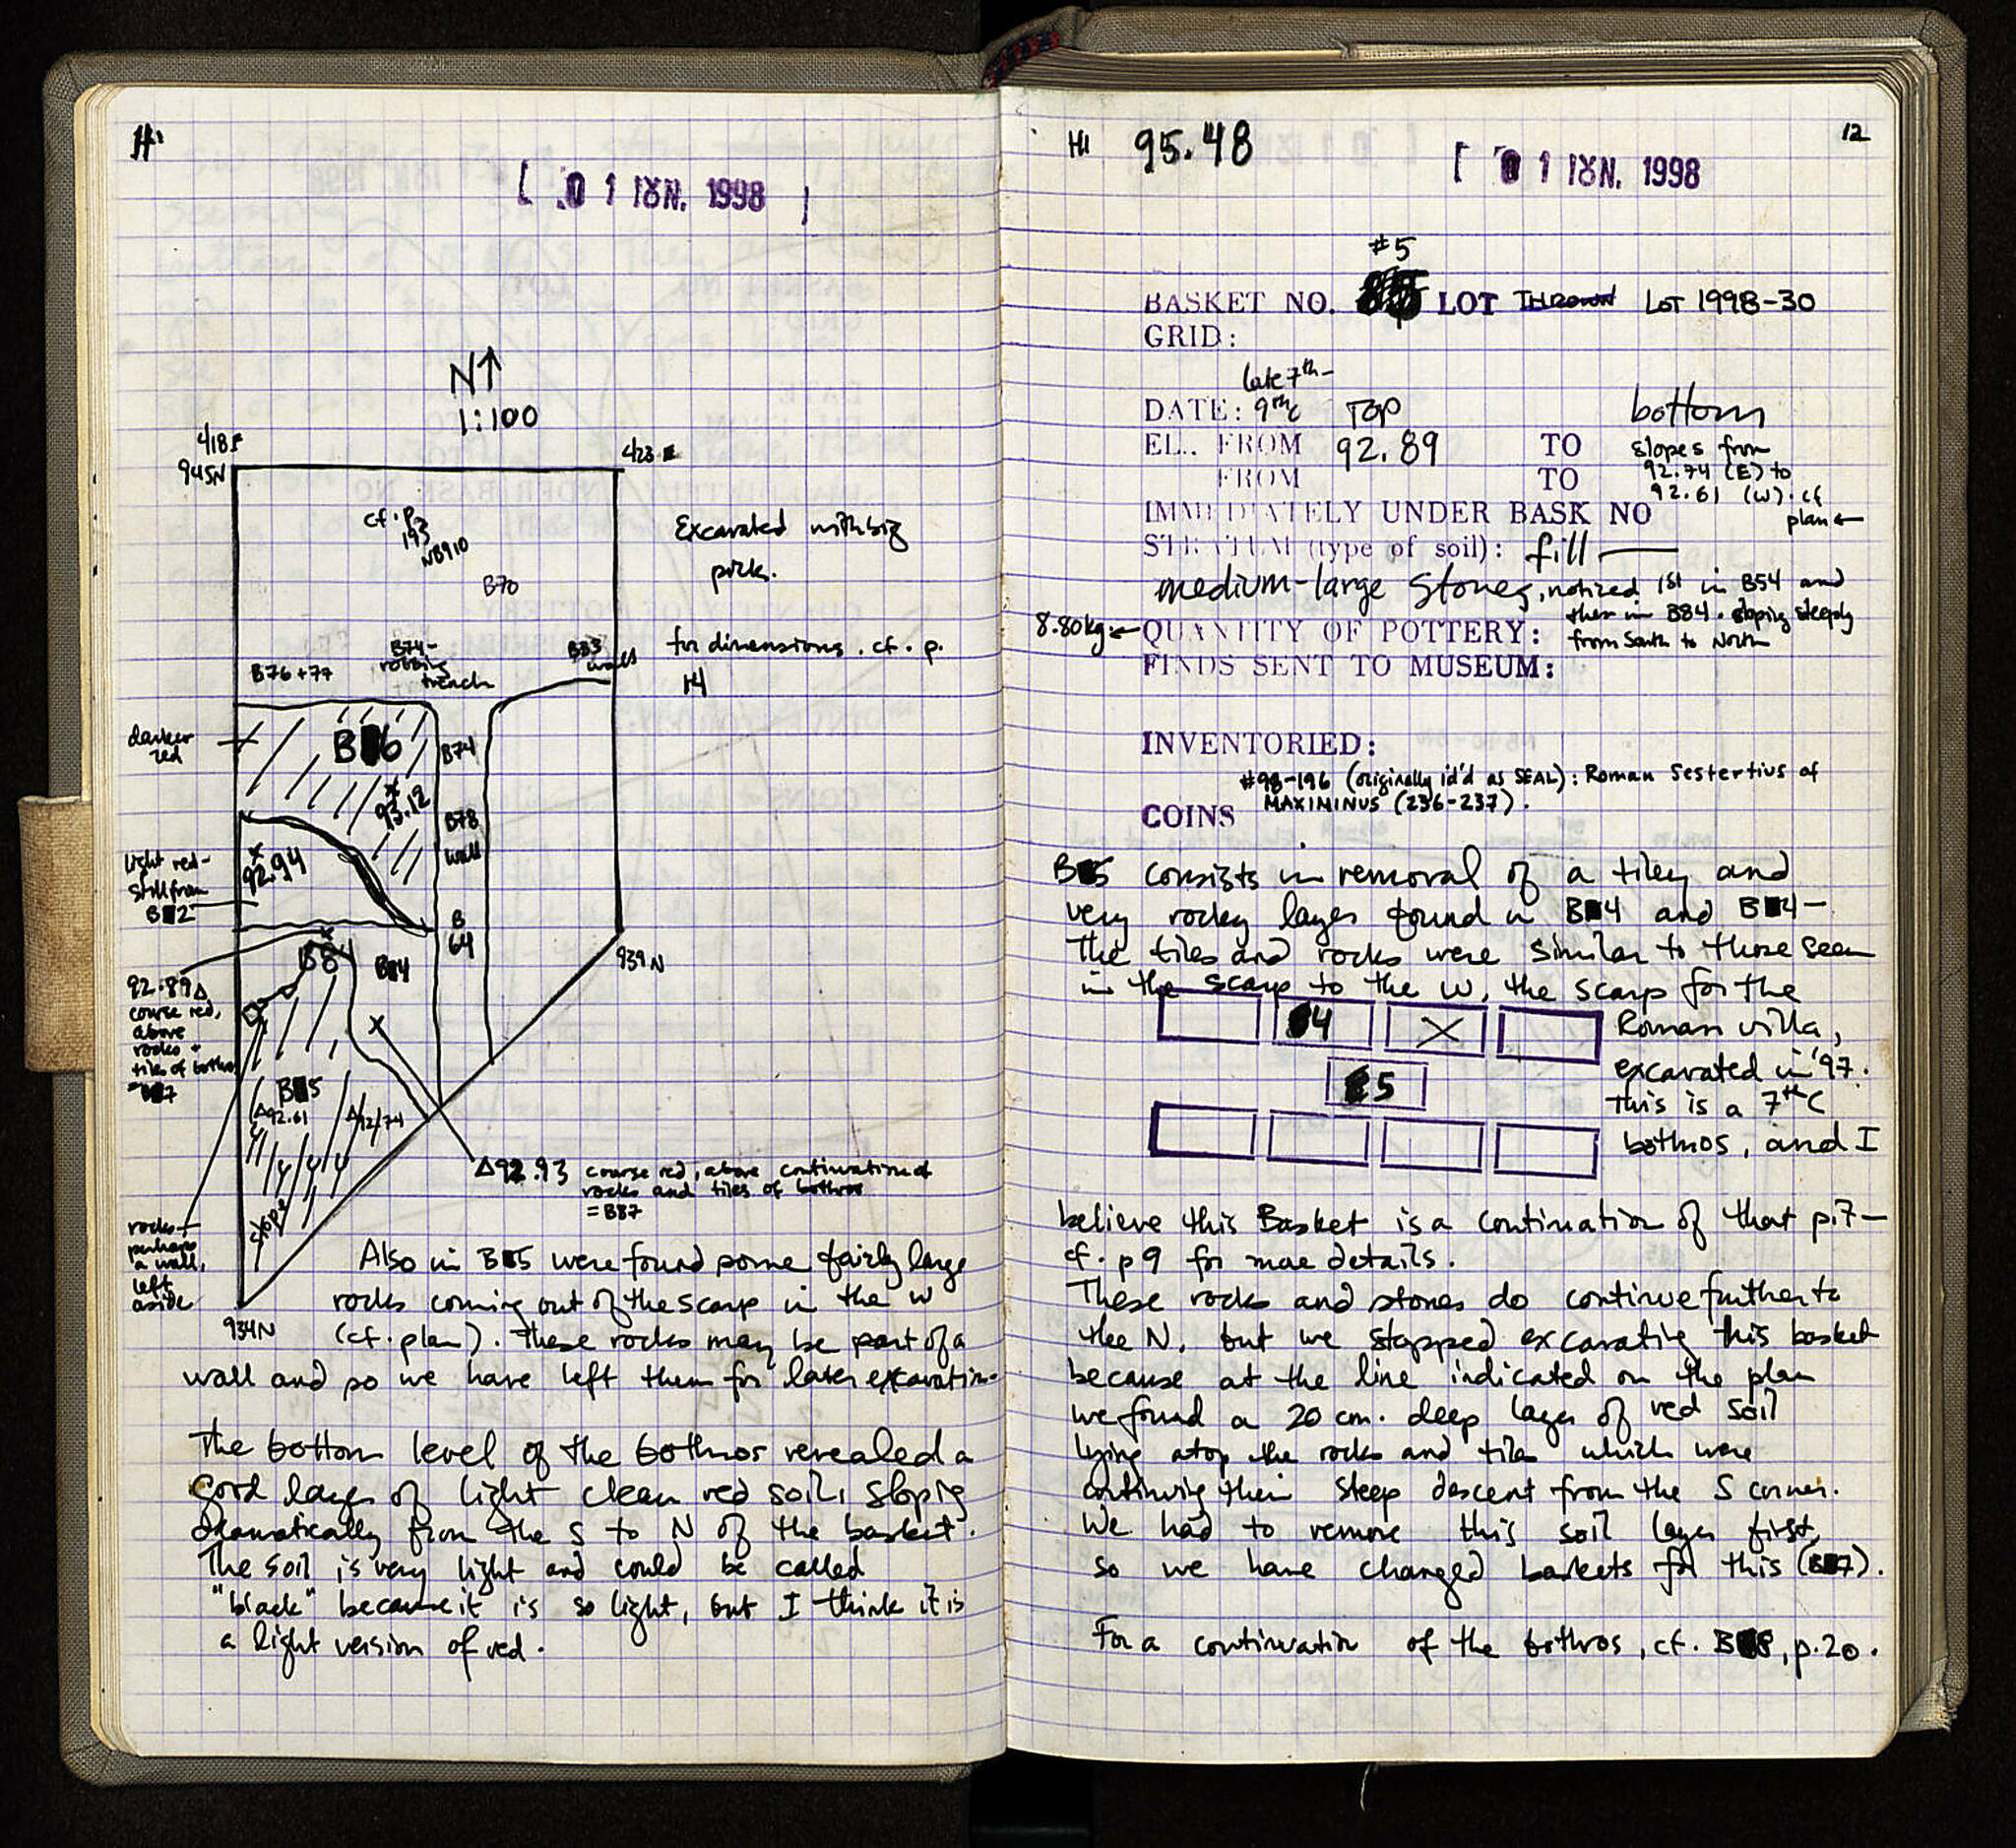 HI
01 ΙΟΥΝ. 1998
N↑
1:100
418E
945N
423 E
cf. p.
193
NB910
B70
Excavated with big
pick.
for dimensions. cf. p.
14
B76+77
B74-
robbing
trench
B83
walls
darker
red
B6
B74
93.12
B78
wall
light red-
still from
B2
92.94
B
64
939N
B84
B4
92.89△
course red,
above
rocks +
tiles of bothros
=B7
B5
△92.61
△92.74
slope
△92.93 course red, above continuation of
rocks and tiles of bothros
=B87
rocks-
perhaps
a wall,
left
aside
934N
Also in B5 were found some fairly large
rocks coming out of the scarp in the W
(cf. plan). These rocks may be part of a
wall and so we have left them for later excavation.
The bottom level of the bothros revealed a
good layer of light clean red soil, sloping
dramatically from the S to N of the basket.
The soil is very light and could be called
"black" because it is so light, but I think it is
a light version of red.
HI 95.48
12
01 ΙΟΥΝ. 1998
#5
BASKET NO. LOT Thrown Lot 1998-30
GRID:
late 7th-
DATE: 9th c Top bottom
EL. FROM 92.89 TO slopes from
FROM TO 92.74 (E) to
92.61 (W). cf
plan←
IMMEDIATELY UNDER BASK NO
STRATUM (type of soil): fill—
medium-large stones, noticed 1st in B54 and
then in B84. sloping steeply
from South to North
8.80kg← QUANTITY OF POTTERY:
FINDS SENT TO MUSEUM:
INVENTORIED:
#98-196 (originally id'd as SEAL): Roman Sestertius of
MAXIMINUS (236-237).
COINS
B5 consists in removal of a tiley and
very rocky layer found in B4 and B4-
The tiles and rocks were similar to those seen
in the scarp to the W, the scarp for the
4 X
Roman villa,
excavated in '97.
5
This is a 7th C
bothros, and I
believe this Basket is a continuation of that p.7-
cf. p 9 for more details.
These rocks and stones do continue further to
the N, but we stopped excavating this basket
because at the line indicated on the plan
we found a 20 cm. deep layer of red soil
lying atop the rocks and tiles which were
continuing their steep descent from the S corner.
We had to remove this soil layer first,
so we have changed baskets for this (B7).
For a continuation of the bothros, cf. B8, p.20.